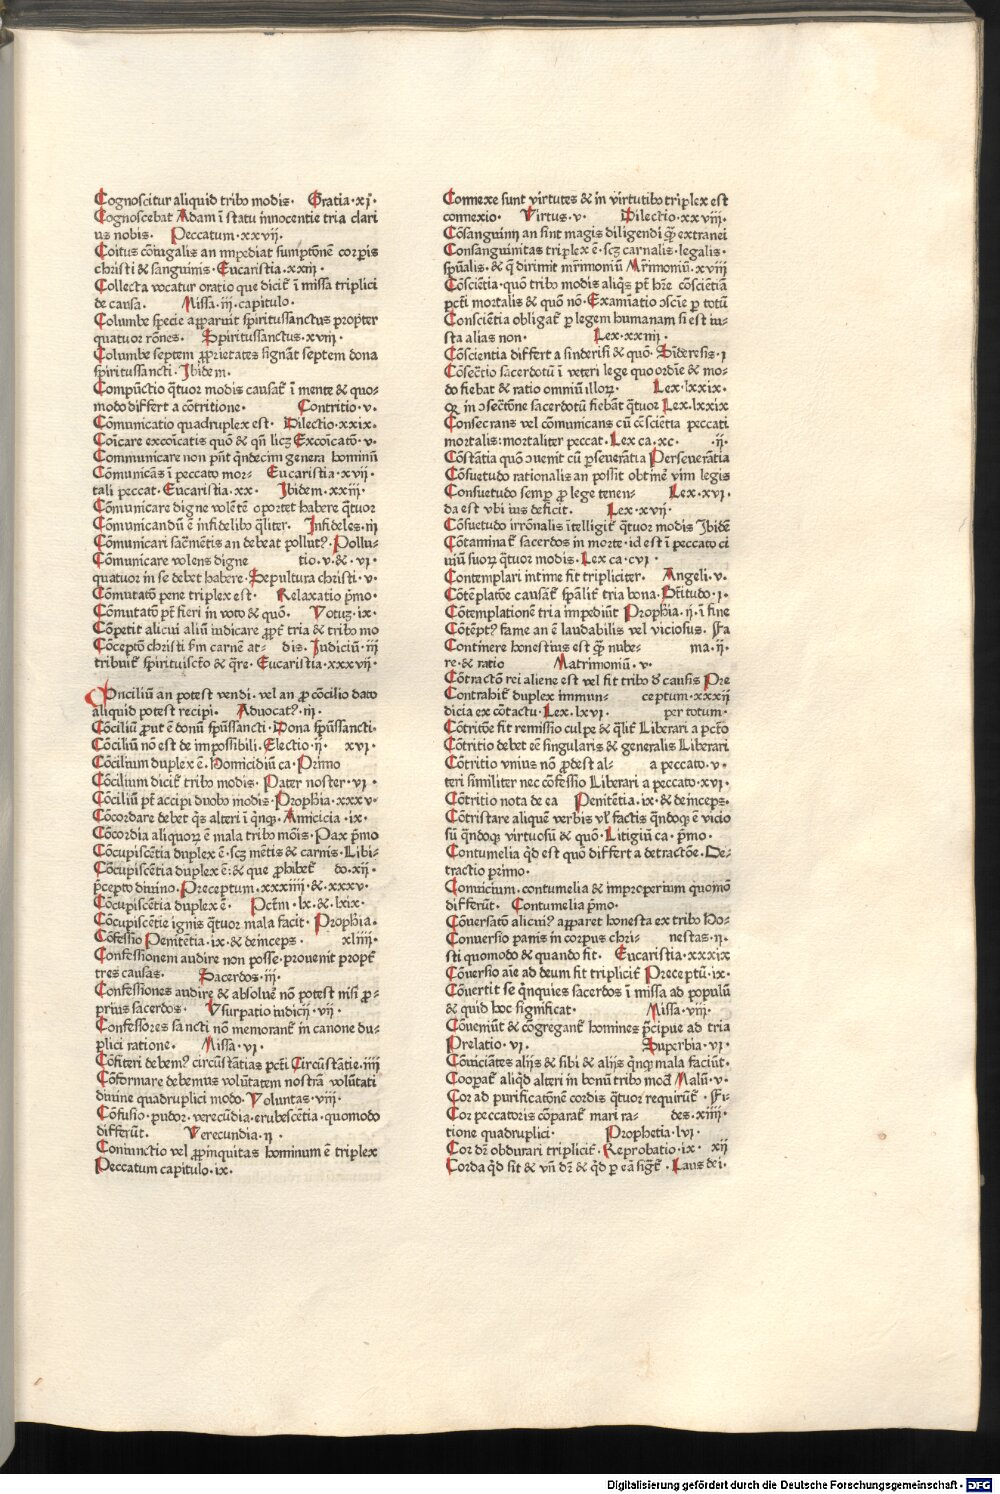 Cognoscitur aliquid tribꝰ modis. Gratia.xj.
Cognoscebat Adam ī statu innocentie tria clari
us nobis. Peccatum.xxvij.
Coitus cōiugalis an impediat sumptōnē corpis
christi & sanguinis. Eucaristia.xxiij.
Collecta vocatur oratio que dicit̄ ī missa triplici
de causa. Missa.iij.capitulo.
Columbe specie apparuit spiritussanctus propter
quatuor rōnes. Spiritussanctus.xvij.
Columbe septem ꝓprietates signāt septem dona
spiritussancti. Ibidem.
Compūctio q̄tuor modis causat̄ ī mente & quo-
modo differt a cōtritione. Contritio.v.
Cōmunicatio quadruplex est. Dilectio.xxix.
Coīcare excoīcatis quō & qn̄ licꝫ Excoīcatō.v.
Communicare non pn̄t q̄ndecim genera hominū
Cōmunicās ī peccato mor- Eucaristia.xvij.
tali peccat. Eucaristia.xx. Ibidem.xxiij.
Cōmunicare digne volētē oportet habere q̄tuor
Cōmunicandū ē infidelibꝰ q̄liter. Infideles.iij
Cōmunicari sacm̄entis an debeat pollutꝰ. Pollu-
Cōmunicare volens digne tio.v.&.vi.
quatuor in se debet habere. Sepultura christi.v.
Cōmutatō pene triplex est. Relaxatio p̄mo.
Cōmutatō pt̄ fieri in voto & quō. Votuꝫ.ix.
Cōpetit alicui aliū iudicare ꝓpt̄ tria & tribꝰ mo
Cōceptō christi s̄m carnē at- dis. Iudiciū.iij
tribuit̄ spirituisct̄o & q̄re. Eucaristia.xxxvij.
Conciliū an potest vendi. vel an ꝓ cōcilio dato
aliquid potest recipi. Aduocatꝰ.iij.
Cōciliū ꝓut ē donū spūssancti. Dona spūssancti.
Cōciliū nō est de impossibili. Electio.ij. xvj.
Cōcilium duplex ē. Homicidiū ca. Primo
Cōcilium dicit̄ tribꝰ modis. Pater noster.vj.
Cōciliū pt̄ accipi duobꝰ modis. Prophīa.xxxv.
Cōcordare debet q̄s alteri ī q̄nqꝫ. Amicicia.ix.
Cōcordia aliquoꝝ ē mala tribꝰ mōis. Pax p̄mo
Cōcupiscētia duplex ē. scꝫ mētis & carnis. Libi-
Cōcupiscētia duplex ē: & que ꝓhibet̄ do.xij.
p̄cepto diuino. Preceptum.xxxiiij.&.xxxv.
Cōcupiscētia duplex ē. Pctm̄.lx.&.lxix.
Cōcupiscētie ignis q̄tuor mala facit. Prophīa.
Cōfessio Penitētia.ix.& deinceps. xliiij.
Confessionem audire non posse. prouenit propt̄
tres causas. Sacerdos.iij.
Confessiones audire & absoluē nō potest nisi ꝓ-
prius sacerdos. Vsurpatio iudicij.vij.
Confessores sancti nō memorant̄ in canone du-
plici ratione. Missa.vj.
Cōfiteri debemꝰ circūstātias pct̄i Circūstātie.iiij
Cōformare debemus volūtatem nostrā volūtati
diuine quadruplici modo. Voluntas.viij.
Cōfusio. pudor. verecūdia. erubescētia. quomodo
differūt. Verecundia.ij.
Coniunctio vel ꝓpīnquitas hominum ē triplex
Peccatum capitulo.ix.
Connexe sunt virtutes & in virtutibꝰ triplex est
connexio. Virtus.v. Dilectio.xxviij.
Cōsanguinii an sint magis diligendi q̄ extranei
Consanguinitas triplex ē. scꝫ carnalis. legalis.
spūalis. & q̄ dirimit mr̄imoniū Mr̄imoniū.xviij
Cōsciētia. quō tribꝰ modis aliq̄s pt̄ hr̄e cōsciētiā
pct̄i mortalis & quō nō. Examiatio ɔscīe ꝑ totū
Consciētia obligat̄ ꝑ legem humanam si est iu-
sta alias non. Lex.xxiiij.
Cōscientia differt a sinderisi & quō. Sīderesis.j
Cōsectio sacerdotū ī veteri lege quo ordīe & mo-
do fiebat & ratio omniū illoꝝ. Lex.lxxix.
Qꝫ in ɔsectōne sacerdotū fiebāt q̄tuor Lex.lxxix
Consecrans vel cōmunicans cū cōsciētia peccati
mortalis: mortaliter peccat. Lex ca.xc. .ij.
Cōstātia quō ɔuenit cū ꝑseuerātia Perseuerātia
Cōsuetudo rationalis an possit obtinē vim legis
Consuetudo semꝑ ꝓ lege tenen- Lex.xvj.
da est vbi ius deficit. Lex.xvij.
Cōsuetudo irrōnalis ītelligit̄ q̄tuor modis Ibidē
Cōtaminat̄ sacerdos in morte. id est ī peccato ci
uiū suoꝝ q̄tuor modis. Lex ca.cvj.
Contemplari intime fit tripliciter. Angeli.v.
Cōtēplatōe causat̄ spāliē tria bona. Bt̄itudo.j.
Cōtemplationē tria impediūt Prophīa.ij. ī fine
Cōtēptꝰ fame an ē laudabilis vel viciosus. Fa
Continere honestius est q̄ nube- ma.ij.
re. & ratio Matrimoniū.v.
Cōtractō rei aliene est vel fit tribꝰ d̄ causis Pre
Contrahit̄ duplex immun- ceptum.xxxij
dicia ex cōtactu. Lex.lxvj. per totum.
Cōtritōe fit remissio culpe & q̄lit̄ Liberari a pct̄o
Cōtritio debet eē singularis & generalis Liberari
Cōtritio vnius nō ꝓdest al- a peccato.v.
teri similiter nec cōfessio Liberari a peccato.xvj.
Cōtritio nota de ea Penitētia.ix.& deinceps.
Cōtristare aliquē verbis vꝉ factis q̄ndoqꝫ ē vicio
sū q̄ndoqꝫ virtuosū & quō. Litigiū ca. p̄mo.
Contumelia q̄d est quō differt a detractōe. De-
tractio primo.
Conuicium. contumelia & improperium quomō
differūt. Contumelia p̄mo.
Cōuersatō alicuiꝰ apparet honesta ex tribꝰ Ho-
Conuersio panis in corpus chri- nestas.ij.
sti quomodo & quando fit. Eucaristia.xxxix
Cōuersio aīe ad deum fit triplicit̄ Preceptū.ix.
Cōuertit se q̄nquies sacerdos ī missa ad populū
& quid hoc significat. Missa.viij.
Cōueniūt & cōgregant̄ homines p̄cipue ad tria
Prelatio.vj. Superbia.vj.
Cōuiciātes alijs & sibi & alijs q̄nqꝫ mala faciūt.
Cooperat̄ aliq̄d alteri in bonū tribꝰ mod̄ Malū.v.
Cor ad purificatōnē cordis q̄tuor requirūt̄. Fi-
Cor peccatoris cōparat̄ mari ra- des.xiiij.
tione quadruplici. Prophetia.lvj.
Cor dr̄ obdurari triplicit̄. Reprobatio.ix. xij
Corda q̄d sit & vn̄ dr̄ & q̄d ꝑ eā siḡt̄. Laus dei.
Digitalisierung gefördert durch die Deutsche Forschungsgemeinschaft - DFG